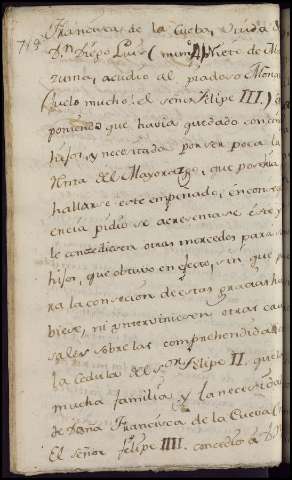 Francisca de la Cueba, viuda de
719 Dn Diego Luis (num. 4) Nieto de Mo
zuma, acudio al piadoso Monar
(suelo mucho! el señor Felipe III.)
poniendo que havia quedado con cin
hijos, y necesitada por ser poca la
Renta del Mayorazgo, que poseia
hallarse este empeñado, en conse
encia pidio se acrecentase este y
le concediesen otras mercedes para
hijos, que obtuvo en efecto, sin que pa
ra la consecion de estas gracias hu
biese, ni interviniesen otras cau
sales sobre las comprehendidas
la cedula del sor. Felipe II. que la
mucha familia y la necesidad
de Doña Francisca de la Cueva
El señor Felipe IIII. concedio a Dn